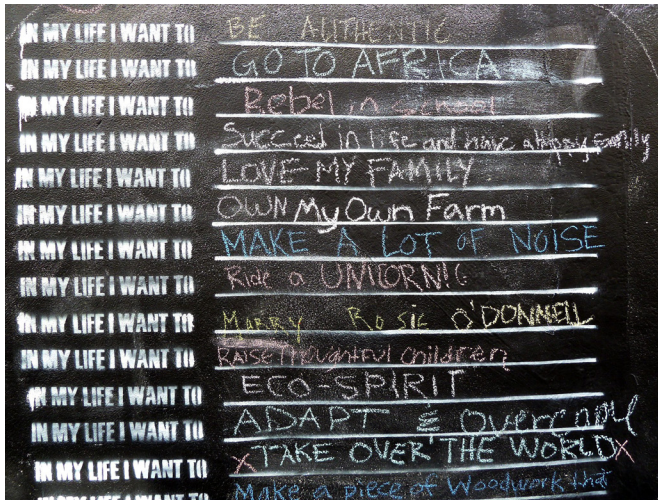 IN MY LIFE I WANT TO BE AUTHENTIC
IN MY LIFE I WANT TO GO TO AFRICA
IN MY LIFE I WANT TO Rebel in School
IN MY LIFE I WANT TO Succeed in life and have a Happy Family
IN MY LIFE I WANT TO LOVE MY FAMILY
IN MY LIFE I WANT TO OWN My Own Farm
IN MY LIFE I WANT TO MAKE A LOT OF NOISE
IN MY LIFE I WANT TO Ride a UNICORN!
IN MY LIFE I WANT TO MARRY ROSIE O'DONNELL
IN MY LIFE I WANT TO RAISE Thoughtful children
IN MY LIFE I WANT TO ECO-SPIRIT
IN MY LIFE I WANT TO ADAPT & Overcome
IN MY LIFE I WANT TO XTAKE OVER THE WORLDX
IN MY LIFE I WANT TO Make a piece of Woodwork that